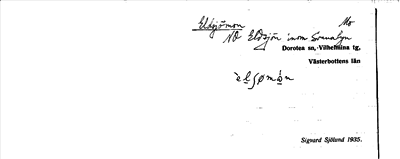 Eldsjömon Mo
NO Eldsjön inom Svanabyn
Dorotea sn, Vilhelmina tg,
Västerbottens län
Sigvard Sjölund 1935.